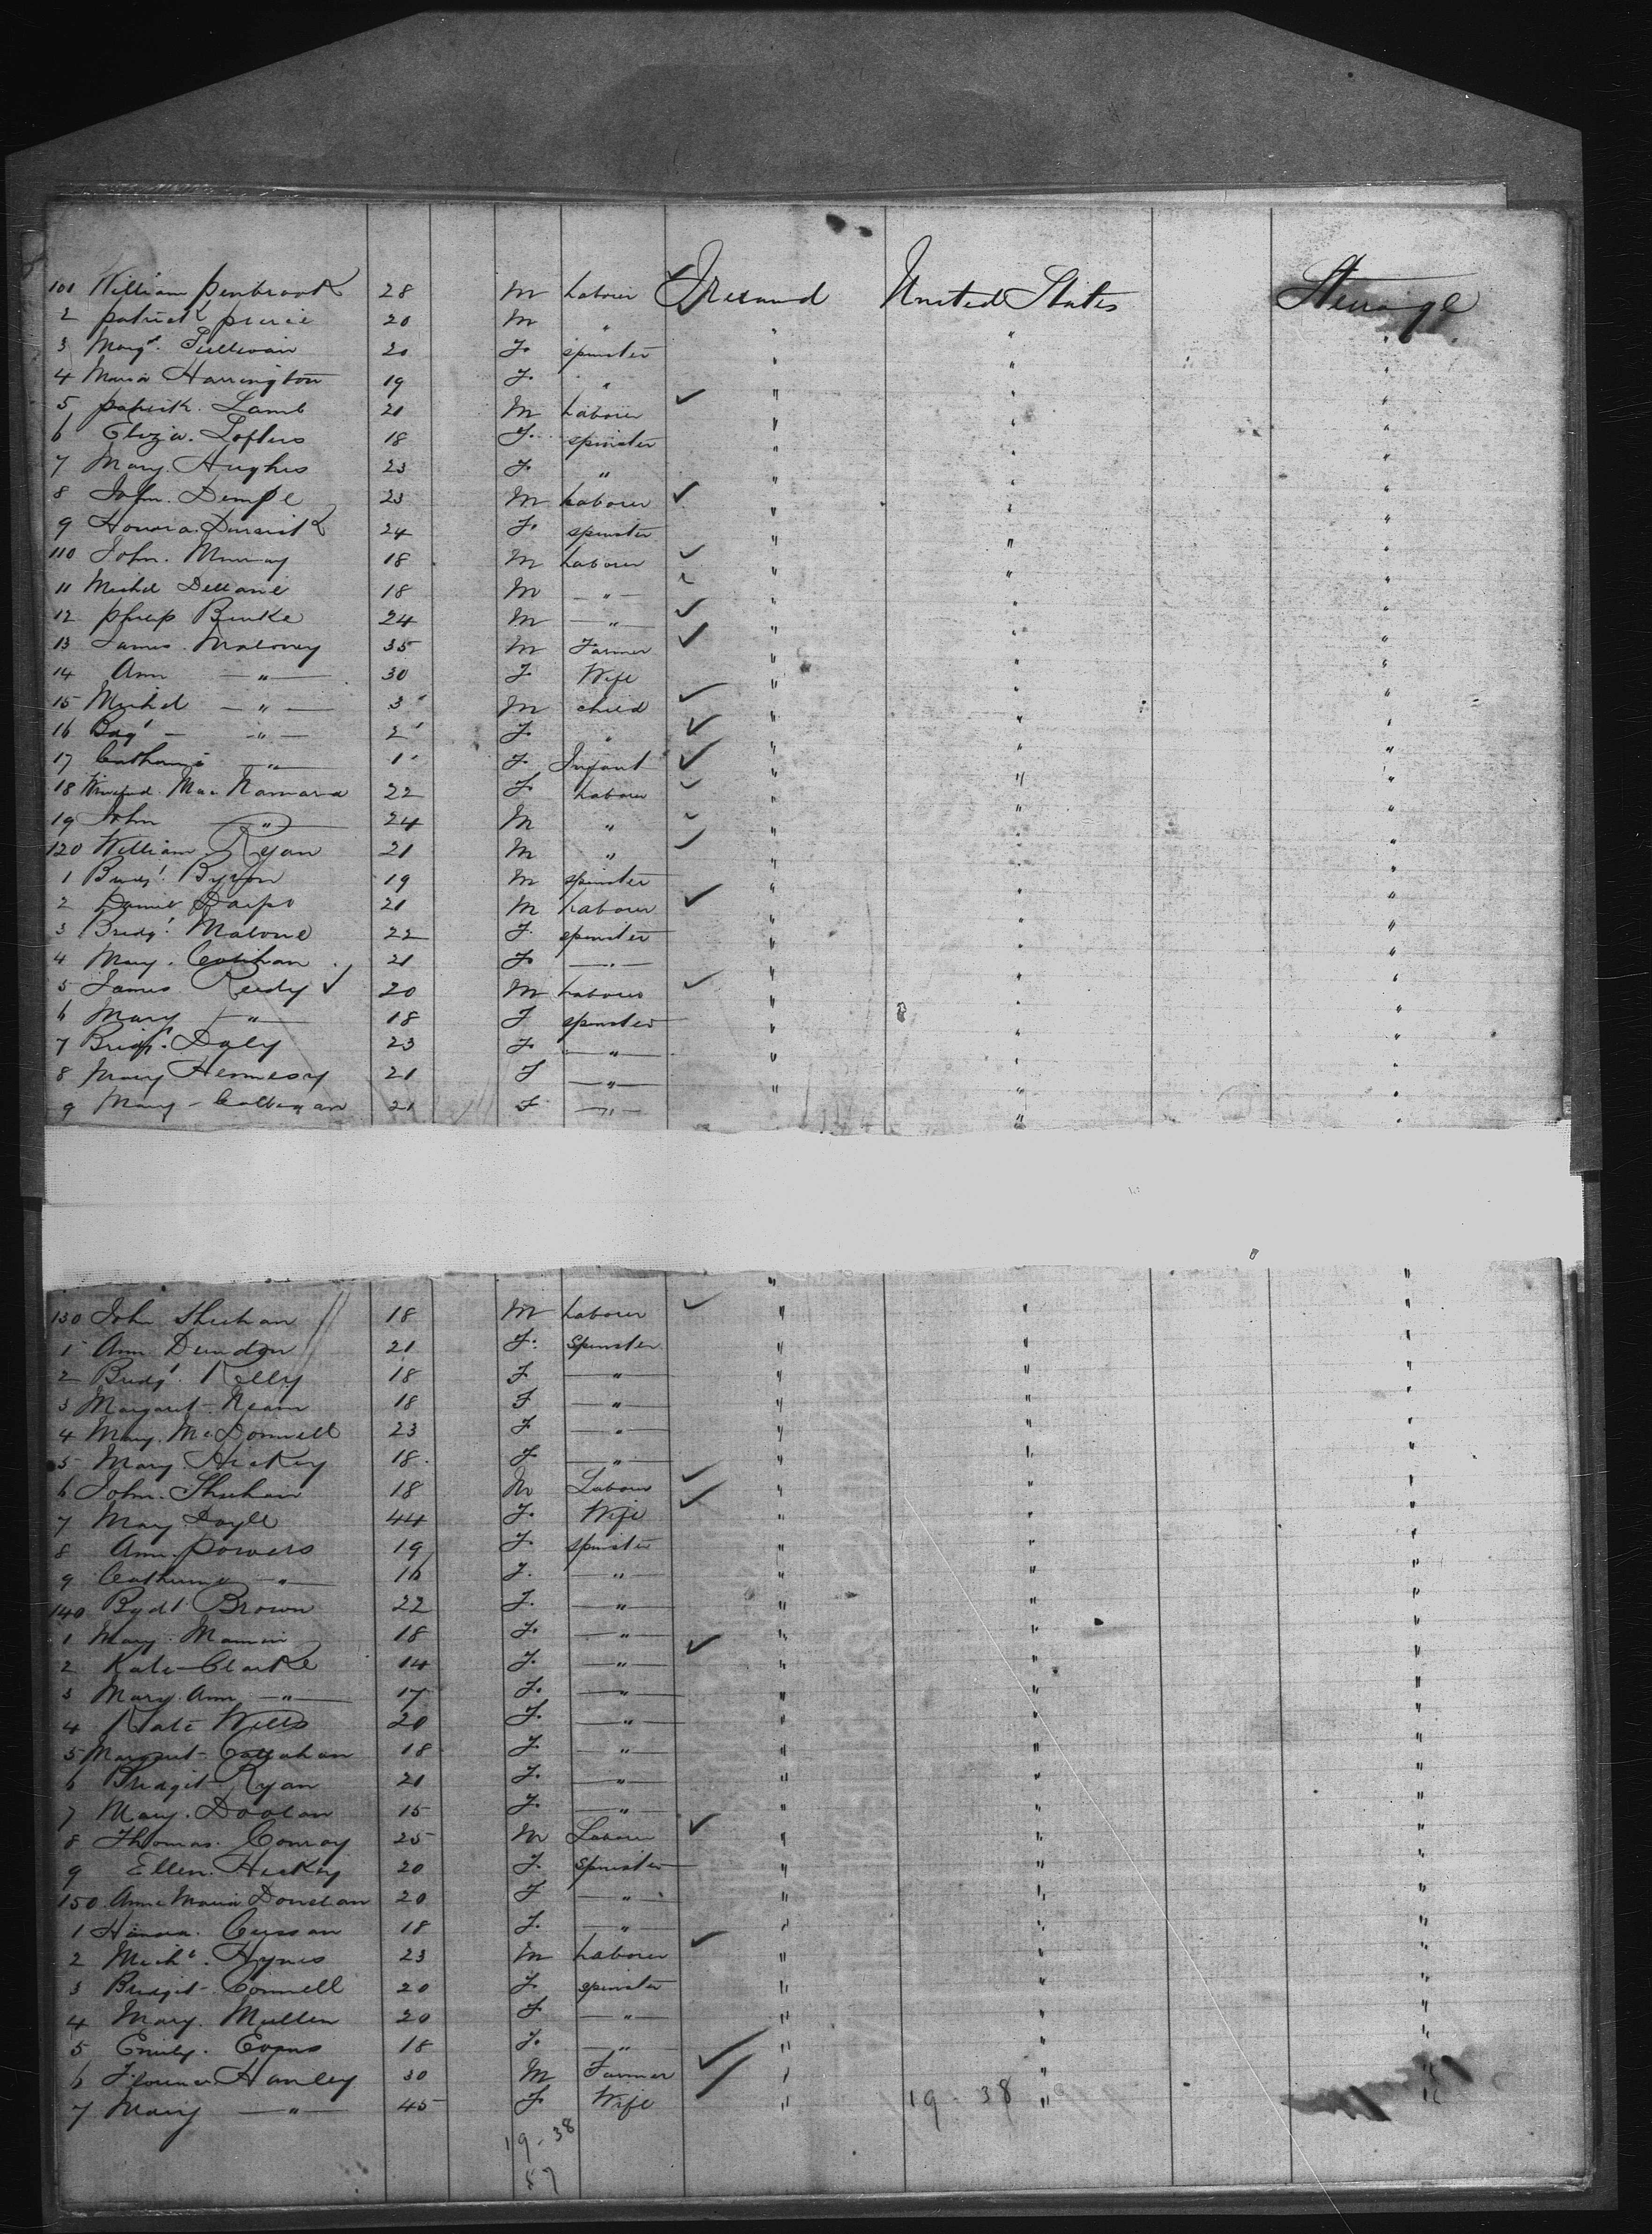 101 William Penbrook 28 M Laborer Ireland United States Steerage
2 Patrick Pierce 20 M " " " "
3 Margt. Sullivan 20 F. spinster " " "
4 Maria Harrington 19 F. " " " "
5 Patrick. Lamb 21 M Laborer " " "
6 Eliza. Loftus 18 F. spinster " " "
7 Mary. Hughes 23 F. " " " "
8 John. 23 M Laborer " " "
9 Honora 24 F. spinster " " "
110 John. Murray 18 M Laborer " " "
11 Michl 18 M — " — " " "
12 Burke 24 M — " — " " "
13 James. Maloney 35 M Farmer " " "
14 Ann — " — 30 F Wife " " "
15 Michl — " — 3 M child " " "
16 — " — 2 F. " " " "
17 — " — 1 F. Infant " " "
18 Mac Namara 22 F Laborer " " "
19 John — " — 24 M " " " "
120 William Ryan 21 M " " " "
1 Bridgt. Byron 19 M spinster " " "
2 21 M Laborer " " "
3 Bridgt. Malone 22 F. spinster " " "
4 Mary. 21 F. — " — " " "
5 James Reidy 20 M Laborer " " "
6 Mary — " — 18 F spinster " " "
7 Bridgt. Daly 23 F. — " — " " "
8 Mary Hennesy 21 F — " — " " "
9 Mary - 21 F — " — " " "
130 John Shehan 18 M Laborer " " "
1 Ann Dundon 21 F. Spinster " " "
2 Bridgt. Kelly 18 F — " — " " "
3 Margaret. 18 F — " — " " "
4 Mary. McDonnell 23 F — " — " " "
5 Mary. Hickey 18. F. — " — " " "
6 John. Shehan 18 M Laborer " " "
7 Mary. Doyle 44 F. Wife " " "
8 Ann. Powers 19 F. spinster " " "
9 Catherine — " — 16 F. — " — " " "
140 Bydt. Brown 22 F. — " — " " "
1 Mary. 18 F. — " — " " "
2 Kate Clarke 14 F. — " — " " "
3 Mary. Ann — " — 17 F. — " — " " "
4 Kate Wells 20 F. — " — " " "
5 Margaret - Callahan 18 F. — " — " " "
6 Bridgit Ryan 21 F. — " — " " "
7 Mary. Doolan 15 F. — " — " " "
8 Thomas. Conroy 25 M Laborer " " "
9 Ellen. Hickey 20 F. Spinster " " "
150 Anne Maria 20 F — " — " " "
1 Honora. 18 F. — " — " " "
2 Michl. Hynes 23 M Laborer " " "
3 Bridgit - Connell 20 F. spinster " " "
4 Mary. Mullen 20 F — " — " " "
5 Emily. Evans 18 F. — " — " " "
6 Florence Hanley 30 M Farmer " " "
7 Mary — " — 45 F Wife " 19 - 38 " "
19 - 38
57